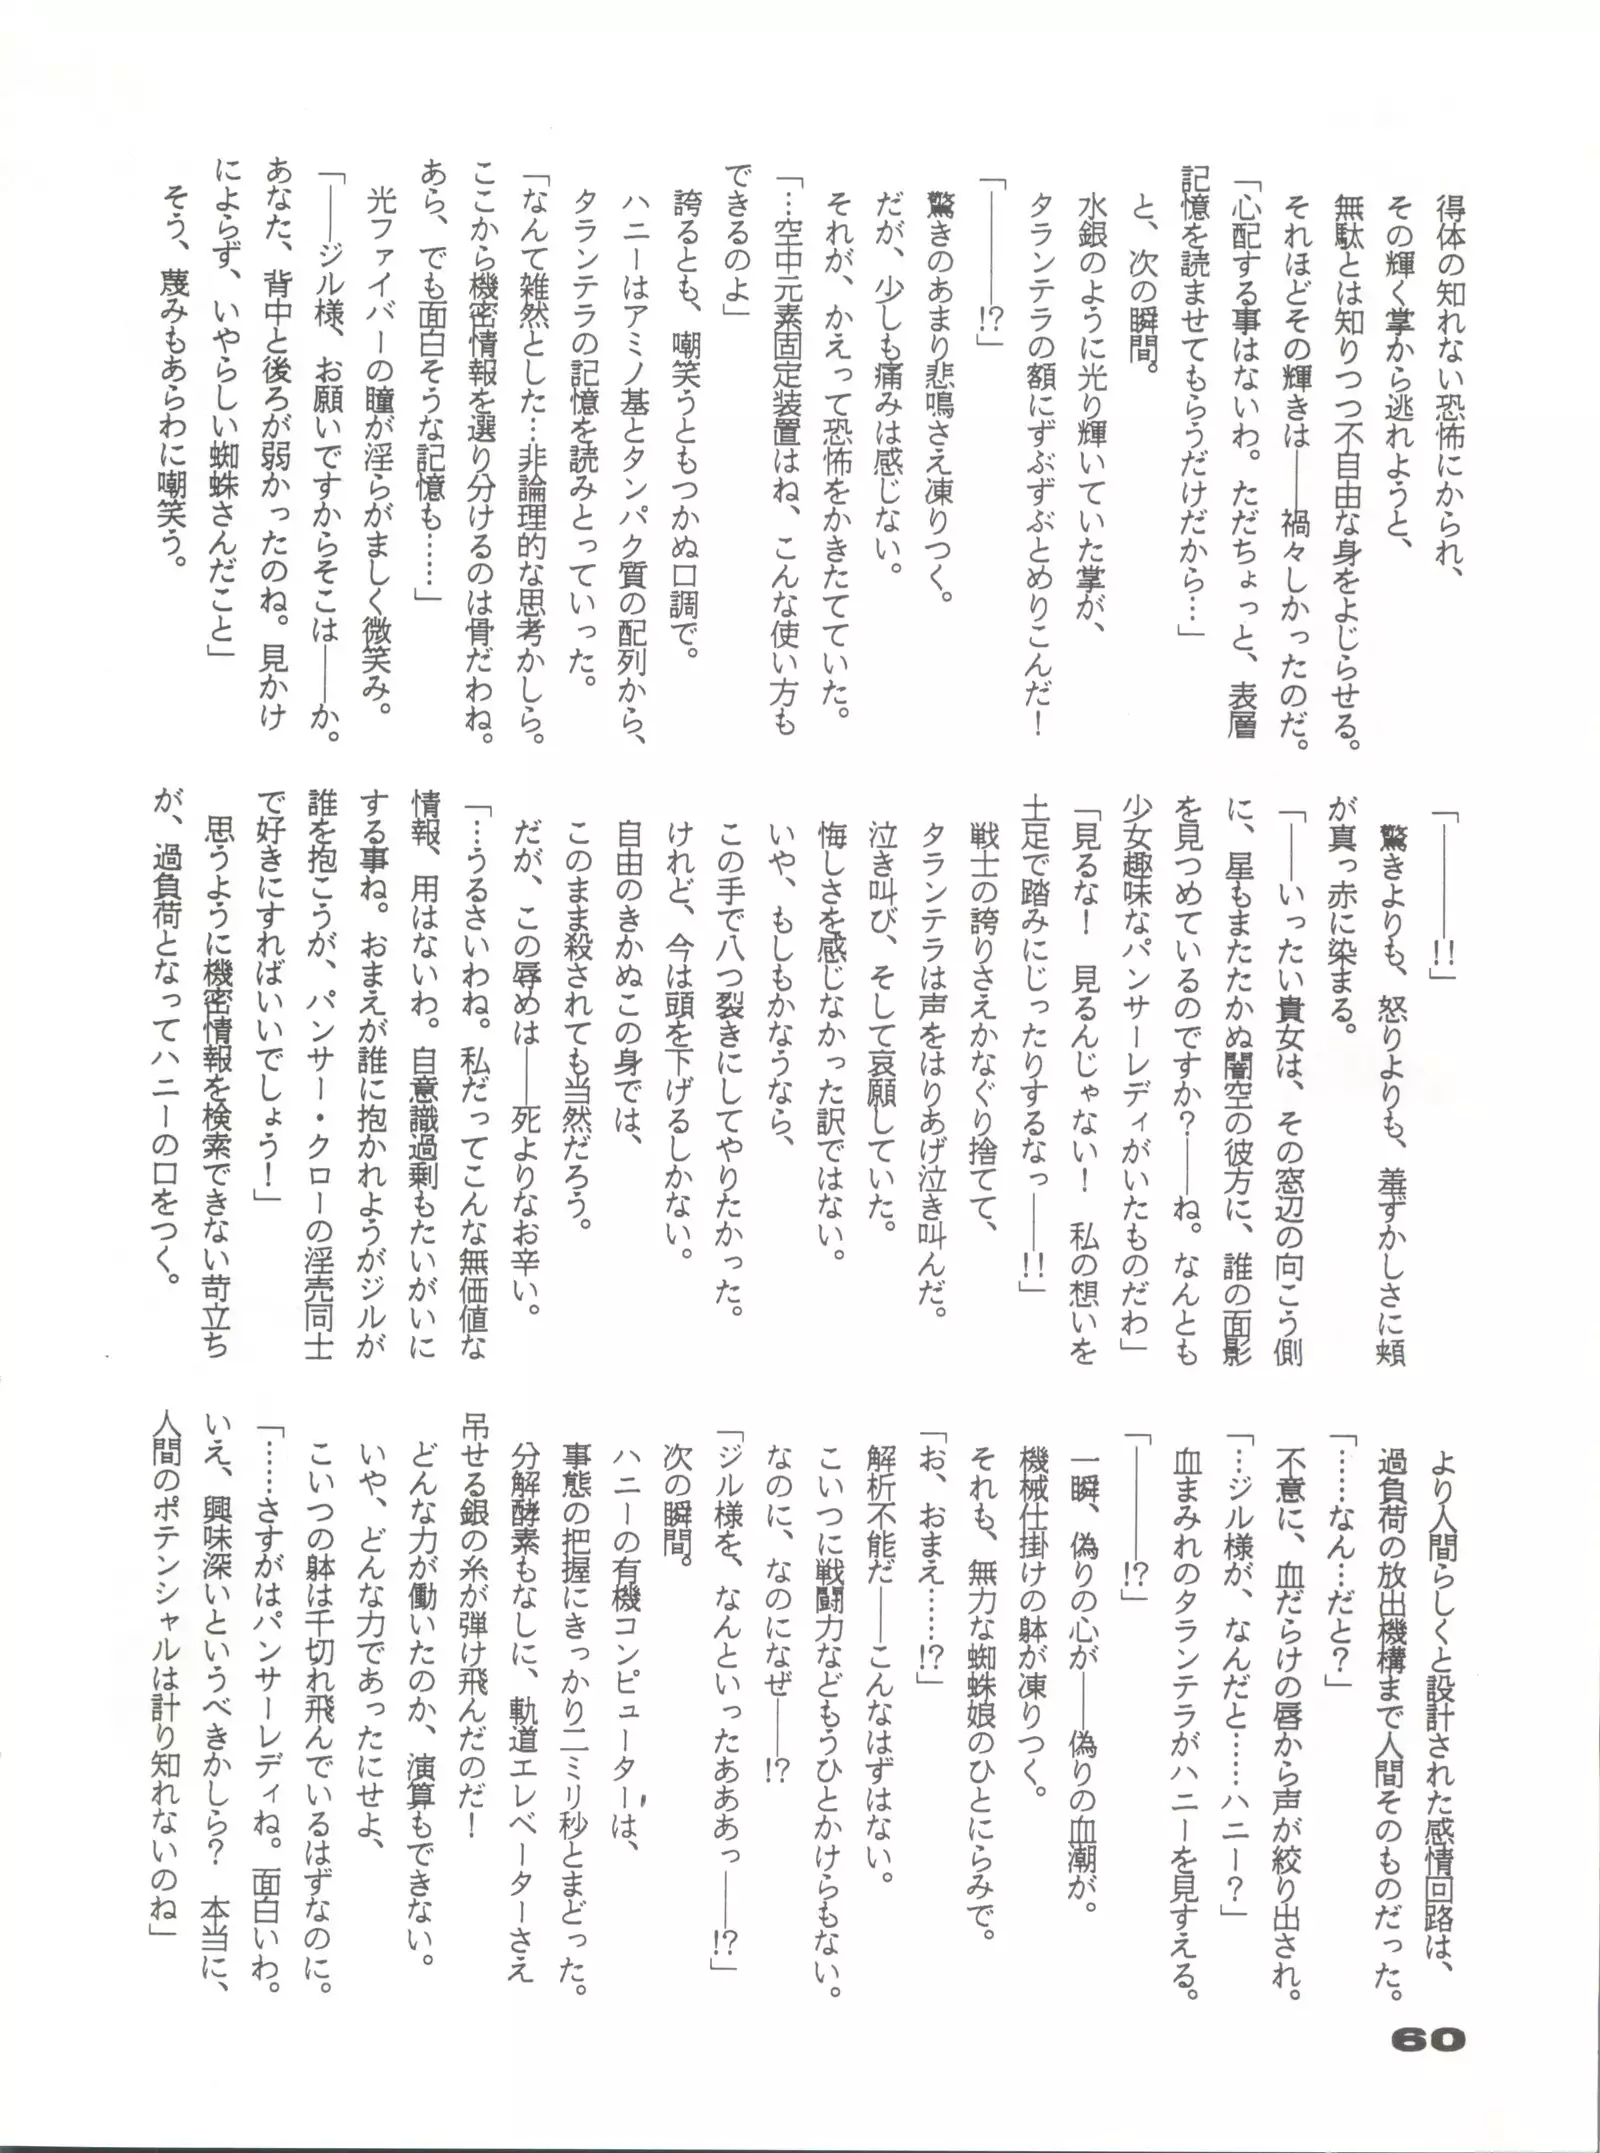 得体の知れない恐怖にかられ、
その輝く掌から逃れようと、
無駄とは知りつつ不自由な身をよじらせる。
それほどその輝きは――禍々しかったのだ。
「心配する事はないわ。ただちょっと、表層
記憶を読ませてもらうだけだから…」
と、次の瞬間。
水銀のように光り輝いていた掌が、
タランテラの額にずぶずぶとめりこんだ!
「―――!?」
驚きのあまり悲鳴さえ凍りつく。
だが、少しも痛みは感じない。
それが、かえって恐怖をかきたてていた。
「…空中元素固定装置はね、こんな使い方も
できるのよ」
誇るとも、嘲笑うともつかぬ口調で。
ハニーはアミノ基とタンパク質の配列から、
タランテラの記憶を読みとっていった。
「なんて雑然とした…非論理的な思考かしら。
ここから機密情報を選り分けるのは骨だわね。
あら、でも面白そうな記憶も……」
光ファイバーの瞳が淫らがましく微笑み。
「――ジル様、お願いですからそこは――か。
あなた、背中と後ろが弱かったのね。見かけ
によらず、いやらしい蜘蛛さんだこと」
そう、蔑みもあらわに嘲笑う。
「―――!!」
驚きよりも、怒りよりも、羞ずかしさに頬
が真っ赤に染まる。
「――いったい貴女は、その窓辺の向こう側
に、星もまたたかぬ闇空の彼方に、誰の面影
を見つめているのですか?――ね。なんとも
少女趣味なパンサーレディがいたものだわ」
「見るな! 見るんじゃない! 私の想いを
土足で踏みにじったりするなっ――!!」
戦士の誇りさえかなぐり捨てて、
タランテラは声をはりあげ泣き叫んだ。
泣き叫び、そして哀願していた。
悔しさを感じなかった訳ではない。
いや、もしもかなうなら、
この手で八つ裂きにしてやりたかった。
けれど、今は頭を下げるしかない。
自由のきかぬこの身では、
このまま殺されても当然だろう。
だが、この辱めは――死よりなお辛い。
「…うるさいわね。私だってこんな無価値な
情報、用はないわ。自意識過剰もたいがいに
する事ね。おまえが誰に抱かれようがジルが
誰を抱こうが、パンサー・クローの淫売同士
で好きにすればいいでしょう!」
思うように機密情報を検索できない苛立ち
が、過負荷となってハニーの口をつく。
より人間らしくと設計された感情回路は、
過負荷の放出機構まで人間そのものだった。
「……なん…だと?」
不意に、血だらけの唇から声が絞り出され。
「…ジル様が、なんだと……ハニー?」
血まみれのタランテラがハニーを見すえる。
「―――!?」
一瞬、偽りの心が――偽りの血潮が。
機械仕掛けの躰が凍りつく。
それも、無力な蜘蛛娘のひとにらみで。
「お、おまえ……!?」
解析不能だ――こんなはずはない。
こいつに戦闘力などもうひとかけらもない。
なのに、なのになぜ――!?
「ジル様を、なんといったあああっ――!?」
次の瞬間。
ハニーの有機コンピューターは、
事態の把握にきっかり二ミリ秒とまどった。
分解酵素もなしに、軌道エレベーターさえ
吊せる銀の糸が弾け飛んだのだ!
どんな力が働いたのか、演算もできない。
いや、どんな力であったにせよ、
こいつの躰は千切れ飛んでいるはずなのに。
「……さすがはパンサーレディね。面白いわ。
いえ、興味深いというべきかしら? 本当に、
人間のポテンシャルは計り知れないのね」
60